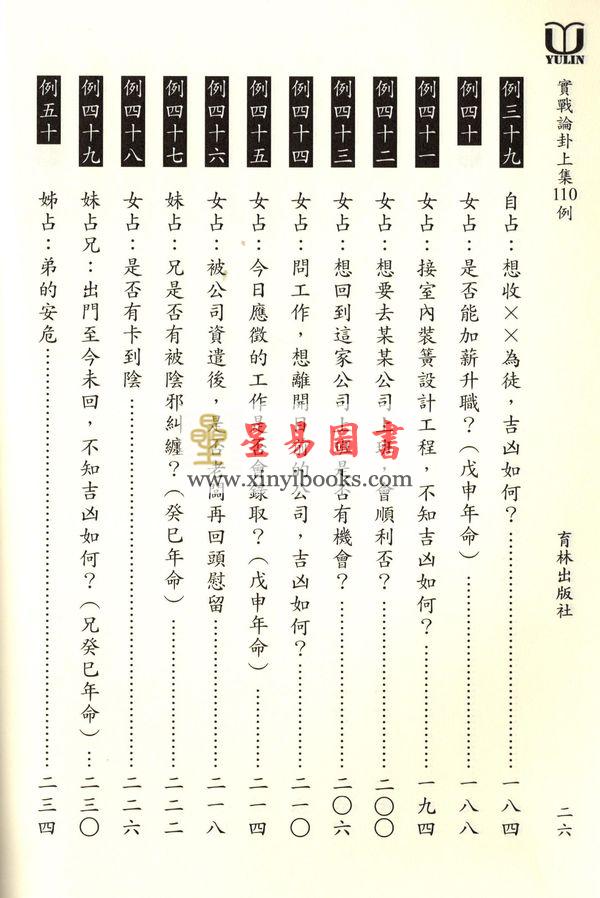 YULIN
實戰論卦上集110例
育林出版社
二六
例三十九 自占：想收××為徒，吉凶如何？……一八四
例四十 女占：是否能加薪升職？（戊申年命）……一八八
例四十一 女占：接室內裝簧設計工程，不知吉凶如何？……一九四
例四十二 女占：想要去某某公司上班，會順利否？……二〇〇
例四十三 女占：想回到這家公司上班是否有機會？……二〇六
例四十四 女占：問工作，想離開目前的公司，吉凶如何？……二一〇
例四十五 女占：今日應徵的工作是否會錄取？（戊申年命）……二一四
例四十六 女占：被公司資遣後，是否老闆再回頭慰留……二一八
例四十七 妹占：兄是否有被陰邪糾纏？（癸巳年命）……二二二
例四十八 女占：是否有卡到陰……二二六
例四十九 妹占兄：出門至今未回，不知吉凶如何？（兄癸巳年命）…二三〇
例五十 姊占：弟的安危……二三四
星易圖書
www.xinyibooks.com